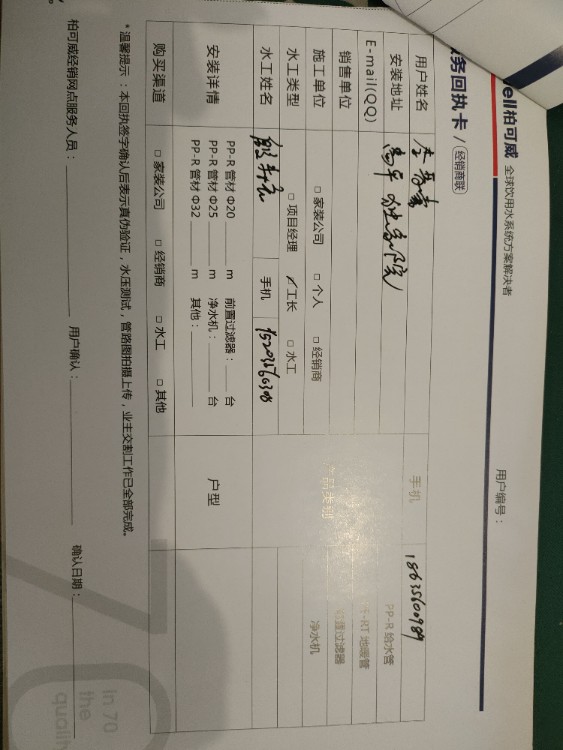 ell柏可威 全球饮用水系统方案解决者
务回执卡 / 经销商联
用户编号：
用户姓名 手机 18635600989
安装地址 高平
E-mail(QQ) PP-R 给水管
销售单位 产品类别 -RT 地暖管
施工单位 □ 家装公司 □ 个人 □ 经销商 置过滤器
水工类型 □ 项目经理 工长 □ 水工 净水机
水工姓名 手机
安装详情 PP-R 管材 Φ20 m 前置过滤器： 台 户型
PP-R 管材 Φ25 m 净水机： 台
PP-R 管材 Φ32 m 其他：
购买渠道 □ 家装公司 □ 经销商 □ 水工 □ 其他
*温馨提示：本回执签字确认后表示真伪验证，水压测试，管路图拍摄上传，业主交割工作已全部完成。
柏可威经销网点服务人员： 用户确认： 确认日期：
In 70
the
qualit